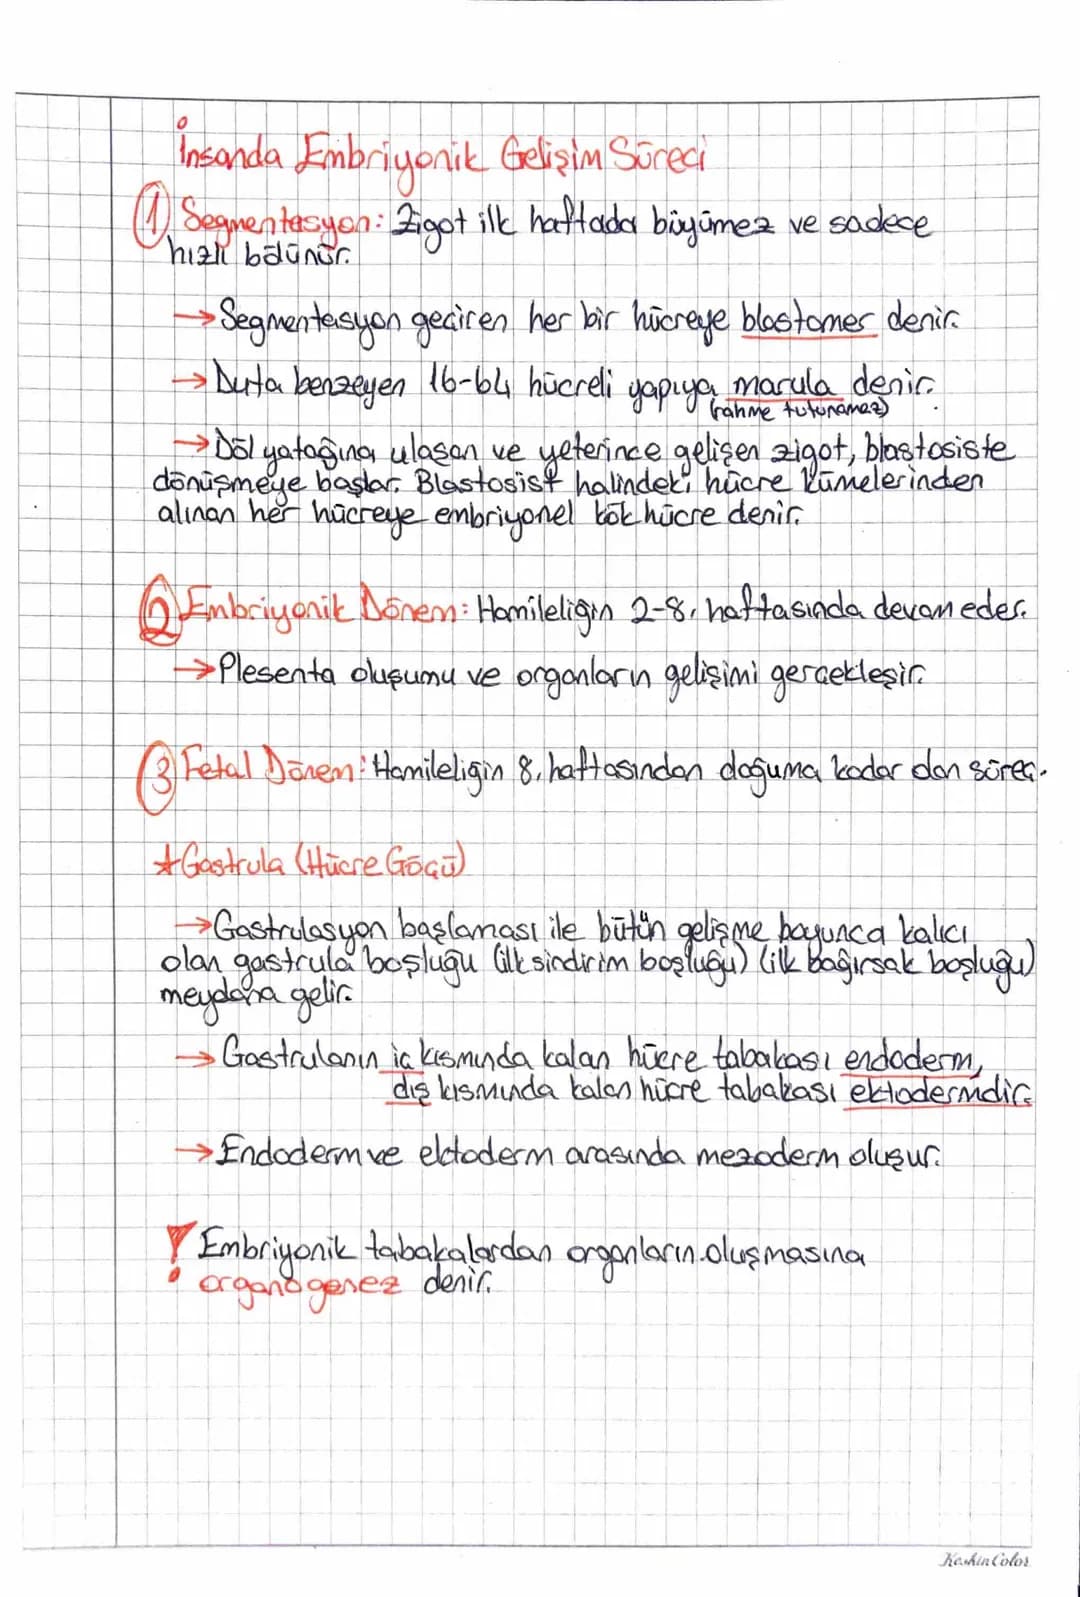 İnsanda Embriyonik Gelişim Süreci
① Segmentasyon: Zigot ilk haftada büyümez ve sadece
hızlı bölünür.
→ Segmentasyon geçiren her bir hücreye blastomer denir.
→ Duta benzeyen 16-64 hücreli yapıya morula denir.
(rahme tutunamaz)
→ Döl yatağına ulaşan ve yeterince gelişen zigot, blastosiste
dönüşmeye başlar. Blastosist halindeki hücre kümelerinden
alınan her hücreye embriyonel kök hücre denir.
② Embriyonik Dönem: Hamileliğin 2-8. haftasında devam eder.
→ Plesenta oluşumu ve organların gelişimi gerçekleşir.
③ Fetal Dönem: Hamileliğin 8. haftasından doğuma kadar olan süreç.
★ Gastrula (Hücre Göçü)
→ Gastrulasyon başlaması ile bütün gelişme boyunca kalıcı
olan gastrula boşluğu (ilk sindirim boşluğu) (ilk bağırsak boşluğu)
meydana gelir.
→ Gastrulanın iç kısmında kalan hücre tabakası endoderm,
dış kısmında kalan hücre tabakası ektodermdir.
→ Endoderm ve ektoderm arasında mezoderm oluşur.
! Embriyonik tabakalardan organların oluşmasına
organogenez denir.
Keskin Color